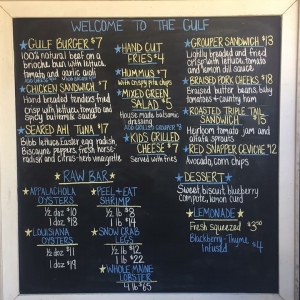 WELCOME TO THE GULF
GULF BURGER $7
100% natural beef on a
brioche bun with lettuce,
tomato and garlic aioli
CHICKEN SANDWICH $7
Hand breaded tenders fried
crisp with lettuce, tomato and
spicy buttermilk sauce
SEARED AHI TUNA $17
Bibb lettuce, Easter egg radish,
Biscayne peppers, fresh horse-
radish and citrus-herb vinaigrette
HAND CUT
FRIES $4
HUMMUS $7
with crispy pita chips
MIXED GREEN
SALAD $5
House made balsamic
dressing
ADD GRILLED GROUPER $8
KIDS GRILLED
CHEESE $7
Served with fries
GROUPER SANDWICH $13
Lightly breaded and fried
crisp with lettuce, tomato and
lemon dill sauce
BRAISED PORK CHEEKS $18
Braised butter beans, baby
tomatoes + country ham
ROASTED TRIPLE TAIL
SANDWICH $15
Heirloom tomato jam and
alfalfa sprouts
RED SNAPPER CEVICHE $12
Avocado, corn chips
RAW BAR
APPALACHOLA
OYSTERS
1/2 doz $10
1 doz $18
LOUISIANA
OYSTERS
1/2 doz $11
1 doz $19
PEEL + EAT
SHRIMP
1/2 lb $8
1 lb $14
SNOW CRAB
LEGS
1/2 lb $12
1 lb $22
WHOLE MAINE
LOBSTER
4 lb $65
DESSERT
Sweet biscuit, blueberry
compote, lemon curd
LEMONADE
Fresh squeezed $3.50
Blackberry-Thyme
Infused $4